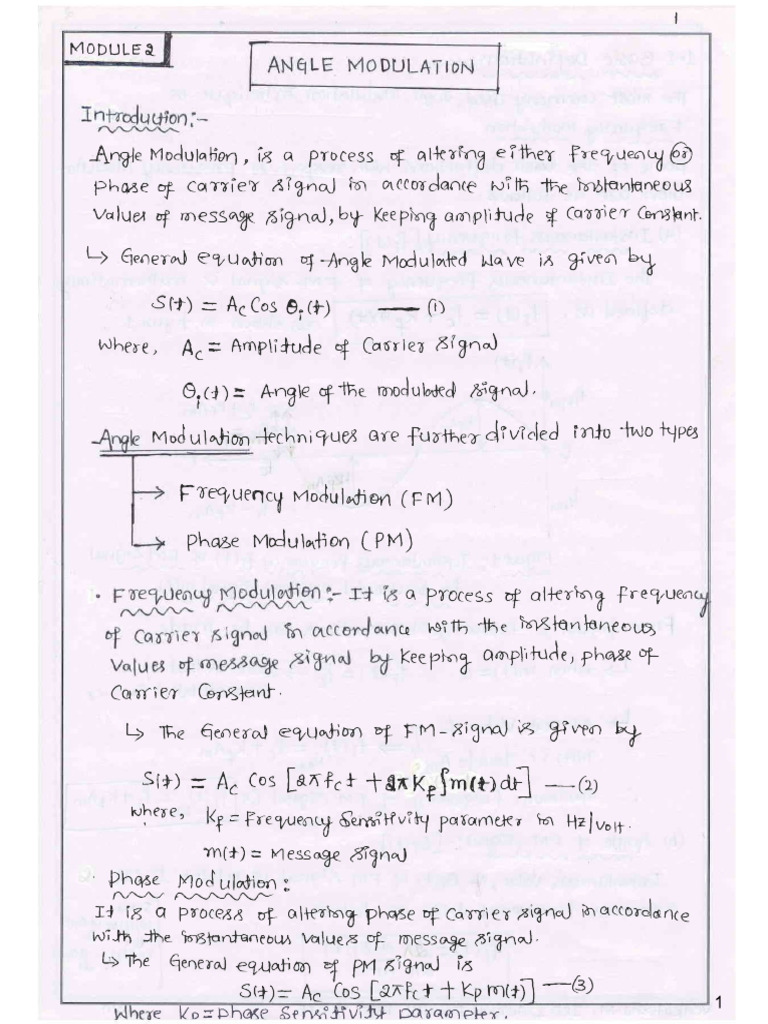 1
MODULE 2
ANGLE MODULATION
Introduction:-
Angle Modulation, is a process of altering either frequency (or)
phase of carrier signal in accordance with the instantaneous
values of message signal, by keeping amplitude of carrier constant.
↳ General equation of Angle Modulated wave is given by
S(t) = Ac Cos θi(t) — (1)
where, Ac = Amplitude of carrier signal
θi(t) = Angle of the modulated signal.
Angle Modulation techniques are further divided into two types
→ Frequency Modulation (FM)
→ Phase Modulation (PM)
• Frequency Modulation:- It is a process of altering frequency
of carrier signal in accordance with the instantaneous
values of message signal by keeping amplitude, phase of
carrier constant.
↳ The General equation of FM-signal is given by
S(t) = Ac Cos [2πfct + 2πKf∫m(t)dt] —(2)
where, Kf = Frequency sensitivity parameter in Hz/volt.
m(t) = Message signal
• Phase Modulation:
It is a process of altering phase of carrier signal in accordance
with the instantaneous values of message signal.
↳ The General equation of PM signal is
S(t) = Ac Cos [2πfct + Kp m(t)] —(3)
where Kp = phase sensitivity parameter.
1